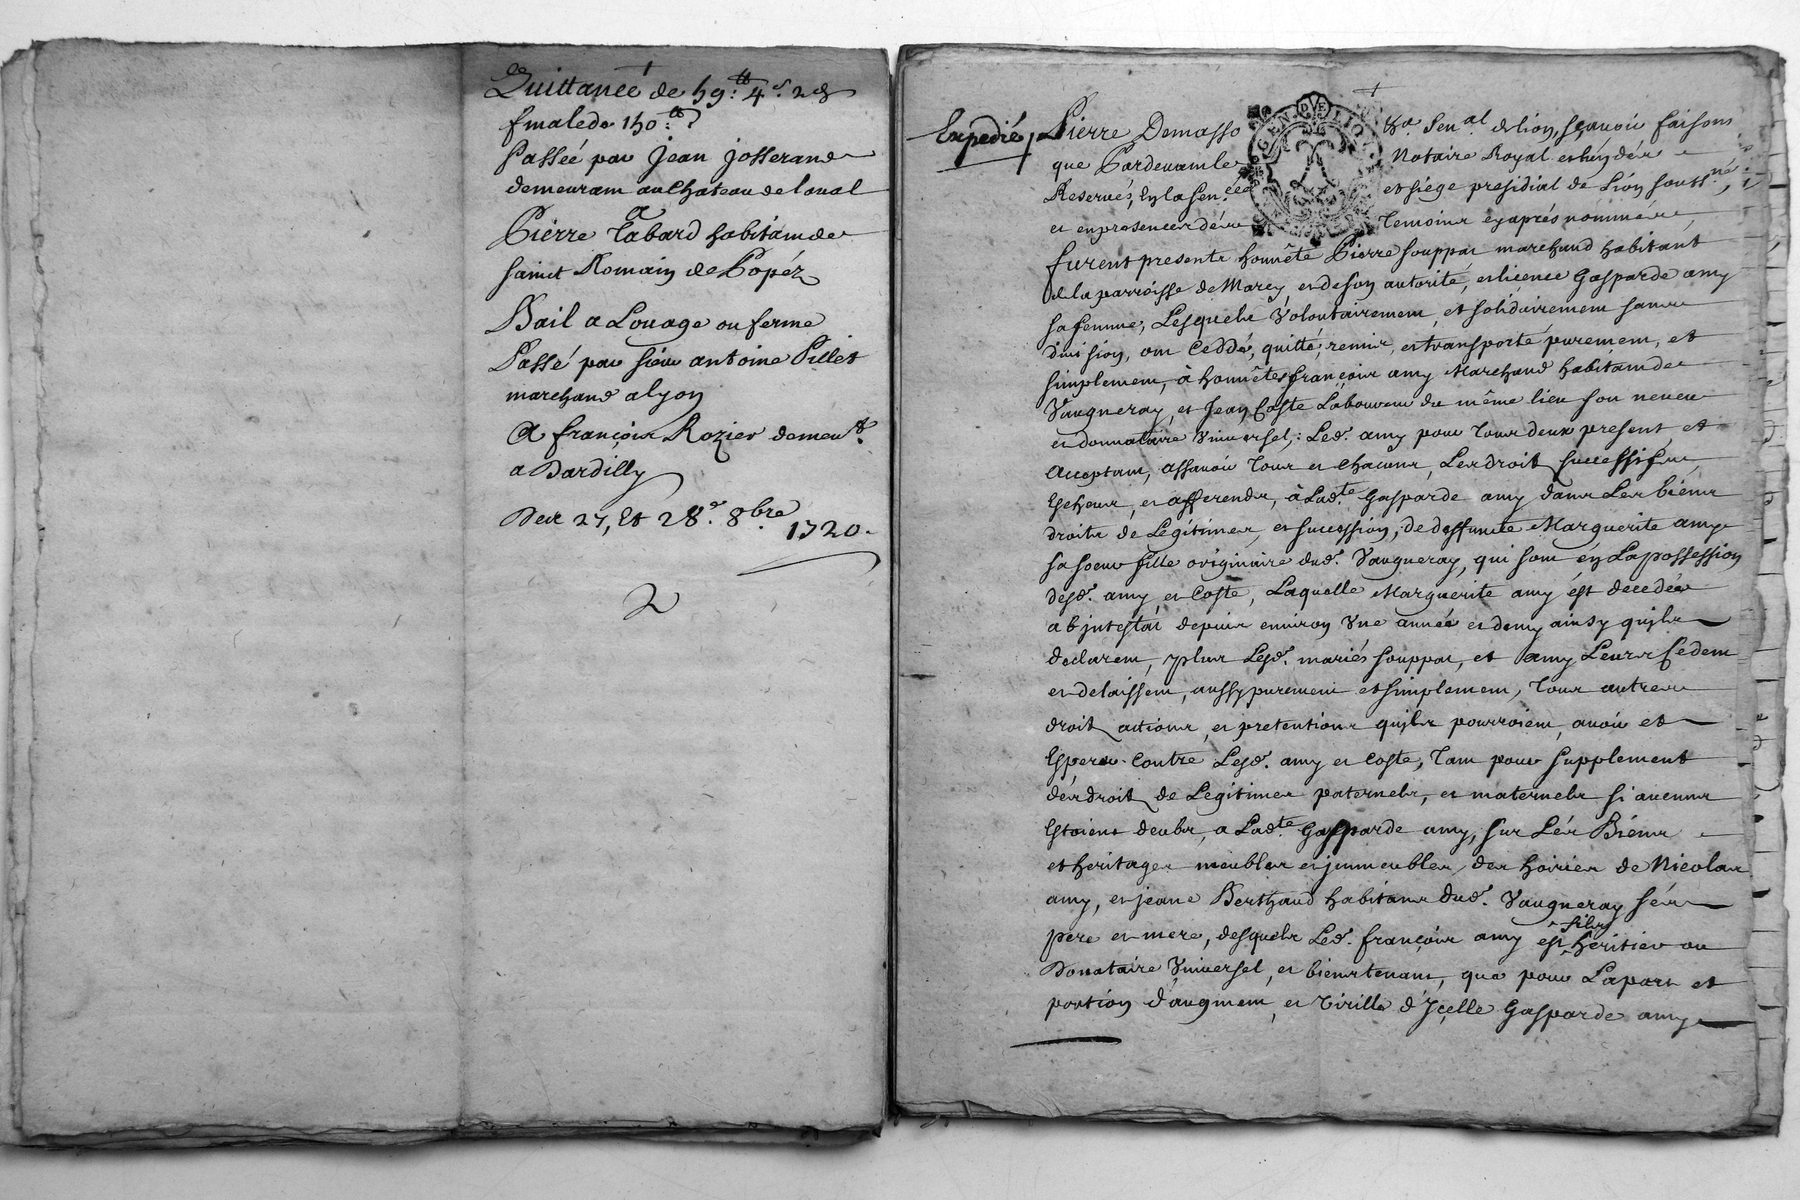 Quittance de 59.tt 4.s 2d
finalede 150.tt
Passée par Jean Josserand
demeurant au Chateau de laual
a
Pierre Tabard habitamde
saint Romain de Popéz
Bail a Louage ou ferme
Passé par sieur antoine Pillet
marchand a lyon
A françois Rozier demeu.t
a Dardilly
Des 27, Et 28.e 8bre
1720.
2
Expedié
Pierre Demasso sen.al delion, sçauoir faisons
que Pardeuantle Notaire Royal et héréd.re
Reserué, En la sen.cée et siége presidial de Lion souss.né,
et en presence des Temoins cy aprés nommés
furent presents honnête Pierre Souppat marchand habitant
de la parroisse de Marcy, et de son autorité, et licence Gasparde amy
sa femme, Lesquels Volontairement, et solidairement sans
diuision, ont Ceddé, quitté, remis, et transporté purement, et
simplement, à honnêtes françois amy Marchand habitamde
Vaugneray, et Jean Coste Laboureur du même lieu son neueu
et donnataire Vniuersel; Led. amy pour Tous deux present et
Acceptant, assauoir Tous et Chacuns, Les droits successifs,
Escheus, et afferends, à Lad.te Gasparde amy dans Les biens
droits de Legitimes, et succession, de deffunte Marguerite amy
sa soeur fille originaire dud. Vaugneray, qui sont en La possession
desd. amy et Coste, Laquelle Marguerite amy est decedée
abjntestat depuis environ Vne année et demy ainsy qu'jls
declarent, yplus Lesd. mariés Souppat, et amy Leurs Cedent
et delaissent, aussy purement et simplement, Tous autres
droits actions, et pretentions qu'jls pourroient auoir et
Esperer Contre Lesd. amy et Coste, Tant pour supplement
des droits de Legitimes paternels, et maternels si aucuns
Estoient deubs, a Lad.te Gasparde amy, sur Lés Biens
et heritages meubles et jmmeubles, des hoiries de Nicolas
amy, et jeane Berthaud habitans dud. Vaugneray sés
pere et mere, desquels Led. françois amy est filz heritier ou
Donataire Vniuersel, et bienstenant, que pour La part et
portion d'augment, et Virille d'Jcelle Gasparde amy